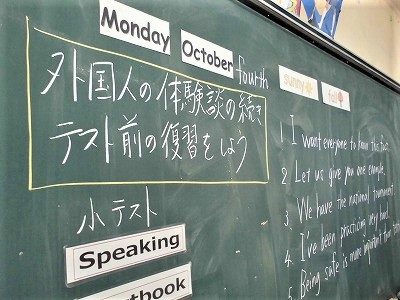 Monday
October fourth
sunny
fall
外国人の体験談の続き
テスト前の復習をしよう
小テスト
Speaking
tbook
1. I want everyone to know this fact.
2. Let us give you one example.
3. We have the national tournament.
4. I've been practicing very hard.
5. Being safe is more important than